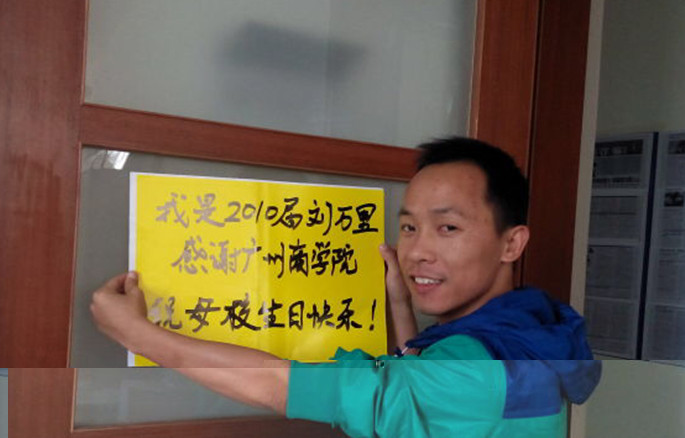 我是2010届刘万里
感谢广州商学院
祝母校生日快乐！